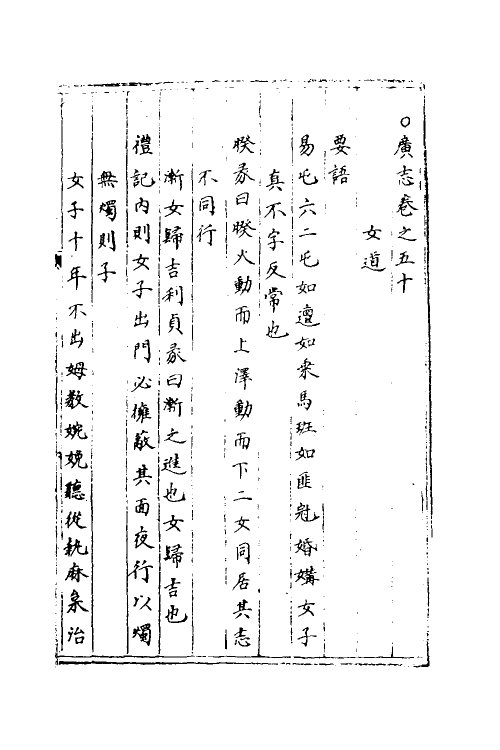 ○廣志卷之五十
女道
要語
易屯六二屯如邅如乘馬班如匪冦婚媾女子
真不字反常也
睽彖曰睽火動而上澤動而下二女同居其志
不同行
漸女歸吉利貞彖曰漸之進也女歸吉也
禮記内則女子出門必擁蔽其面夜行以燭
無燭則子
女子十年不出姆教婉娩聽從執麻枲治